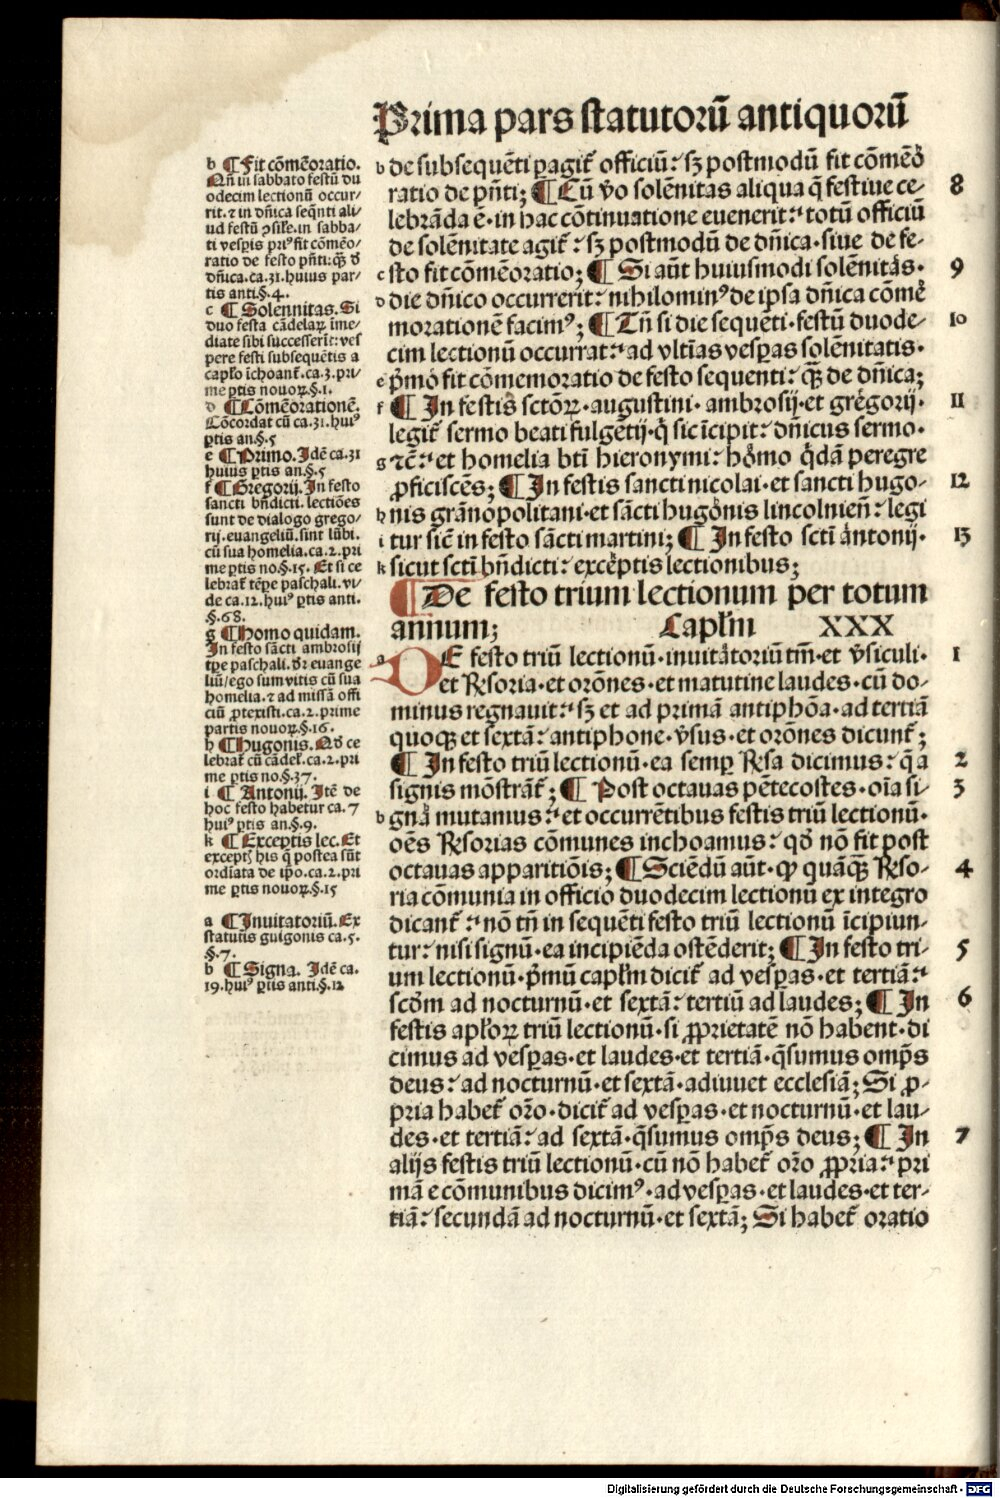 Prima pars statutorū antiquorū
b ¶ Fit cōmēoratio.
Qn̄ in sabbato festū du
odecim lectionū occur/
rit. ⁊ in dn̄ica seq̄nti ali/
ud festū ꝯsile. in sabba/
ti vesp̄is priꝰ fit cōmēo/
ratio de festo pn̄ti: qꝫ ꝺ
dn̄ica. ca. 31. huius par/
tis anti. §. 4.
c ¶ Solennitas. Si
duo festa cādelaꝝ īme/
diate sibi successerīt: ves
pere festi subsequētis a
capłō īchoant̄. ca. 3. pri/
me ptis nouoꝝ. §. 1.
d ¶ Cōmēorationē.
Cōcordat cū ca. 31. huiꝰ
ꝑtis an. §. 5
e ¶ Primo. Idē ca. 31
huius ꝑtis an. §. 5
f ¶ Gregorij. In festo
sancti bn̄dicti. lectiōes
sunt de dialogo grego/
rij. euangeliū. sint lūbi.
cū sua homelia. ca. 2. pri
me ꝑtis no. §. 15. Et si ce
lebrat̄ tēpe paschali. vi/
de ca. 12. huiꝰ ꝑtis anti.
§. 68.
g ¶ Homo quidam.
In festo sācti ambrosij
tꝑe paschali. dr̄ euange
liū/ ego sum vitis cū sua
homelia. ⁊ ad missā offi
ciū ꝓtexisti. ca. 2. prime
partis nouoꝝ. §. 16.
h ¶ Hugonis. Qꝺ ce
lebrat̄ cū cādel̄. ca. 2. pri
me ꝑtis no. §. 37.
i ¶ Antonij. Itē de
hoc festo habetur ca. 7
huiꝰ ꝑtis an. §. 9.
k ¶ Exceptis lec. Et
except̄ his q̄ postea sūt
ordīata de ip̄o. ca. 2. pri
me ꝑtis nouoꝝ. §. 15
a ¶ Inuitatoriū. Ex
statutis guigonis ca. 5.
§. 7.
b ¶ Signa. Idē ca.
19. huiꝰ ꝑtis anti. §. 12
b de subsequēti pagit̄ officiū: sꝫ postmodū fit cōmēo
ratio de pn̄ti; ¶ Cū v̄o solēnitas aliqua q̄ festiue ce- 8
lebrāda ē· in hac cōtinuatione euenerit: totū officiū
de solēnitate agit̄: sꝫ postmodū de dn̄ica· siue de fe-
c sto fit cōmēoratio; ¶ Si aūt huiusmodi solēnitas· 9
d die dn̄ico occurrerit: nihilominꝰ de ipsa dn̄ica cōmē
morationē facimꝰ; ¶ Tn̄ si die sequēti· festū duode- 10
cim lectionū occurrat: ad vltīas vesꝑas solēnitatis·
e p̄mo fit cōmemoratio de festo sequenti: qꝫ de dn̄ica;
f ¶ In festis sctōꝝ· augustini· ambrosij· et gregorij· 11
legit̄ sermo beati fulgētij· q̄ sic īcipit: dn̄icus sermo·
g ⁊c̄: et homelia btī hieronymi: homo q̄dā peregre
ꝓficiscēs; ¶ In festis sancti nicolai· et sancti hugo- 12
h nis grānopolitani· et sācti hugōnis lincolnien̄: legi
i tur sic̄ in festo sācti martini; ¶ In festo sctī antonij· 13
k sicut sctī bn̄dicti: exceptis lectionibus;
¶ De festo trium lectionum per totum
annum; Capłm XXX
a DE festo triū lectionū· inuitatoriū tm̄· et v̄siculi· 1
et R̄soria· et orōnes· et matutine laudes· cū do-
minus regnauit: sꝫ et ad primā antiphōa· ad tertiā
quoqꝫ et sextā: antiphone· v̄sus· et orōnes dicunt̄;
¶ In festo triū lectionū· ea semꝑ R̄sa dicimus: q̄ a 2
signis mōstrāt̄; ¶ Post octauas pētecostes· oīa si- 3
b gna mutamus: et occurrētibus festis triū lectionū·
oēs R̄sorias cōmunes inchoamus: qꝺ nō fit post
octauas apparitiōis; ¶ Sciēdū aūt· ꝙ quāqꝫ R̄so- 4
ria cōmunia in officio duodecim lectionū ex integro
dicant̄: nō tn̄ in sequēti festo triū lectionū īcipiun-
tur: nisi signū· ea incipiēda ostēderit; ¶ In festo tri- 5
um lectionū· p̄mū capłm dicit̄ ad vesꝑas· et tertiā:
scd̄m ad nocturnū· et sextā: tertiū ad laudes; ¶ In 6
festis apłoꝝ triū lectionū· si ꝓprietatē nō habent· di
cimus ad vesꝑas· et laudes· et tertiā· q̄sumus omp̄s
deus: ad nocturnū· et sextā· adiuuet ecclesiā; Si ꝓ-
pria habet̄ orō· dicit̄ ad vesꝑas· et nocturnū· et lau-
des· et tertiā: ad sextā· q̄sumus omp̄s deus; ¶ In 7
alijs festis triū lectionū· cū nō habet̄ orō ꝓpria: pri
mā e cōmunibus dicimꝰ· ad vesꝑas· et laudes· et ter-
tiā: secundā ad nocturnū· et sextā; Si habet̄ oratio
Digitalisierung gefördert durch die Deutsche Forschungsgemeinschaft - DFG